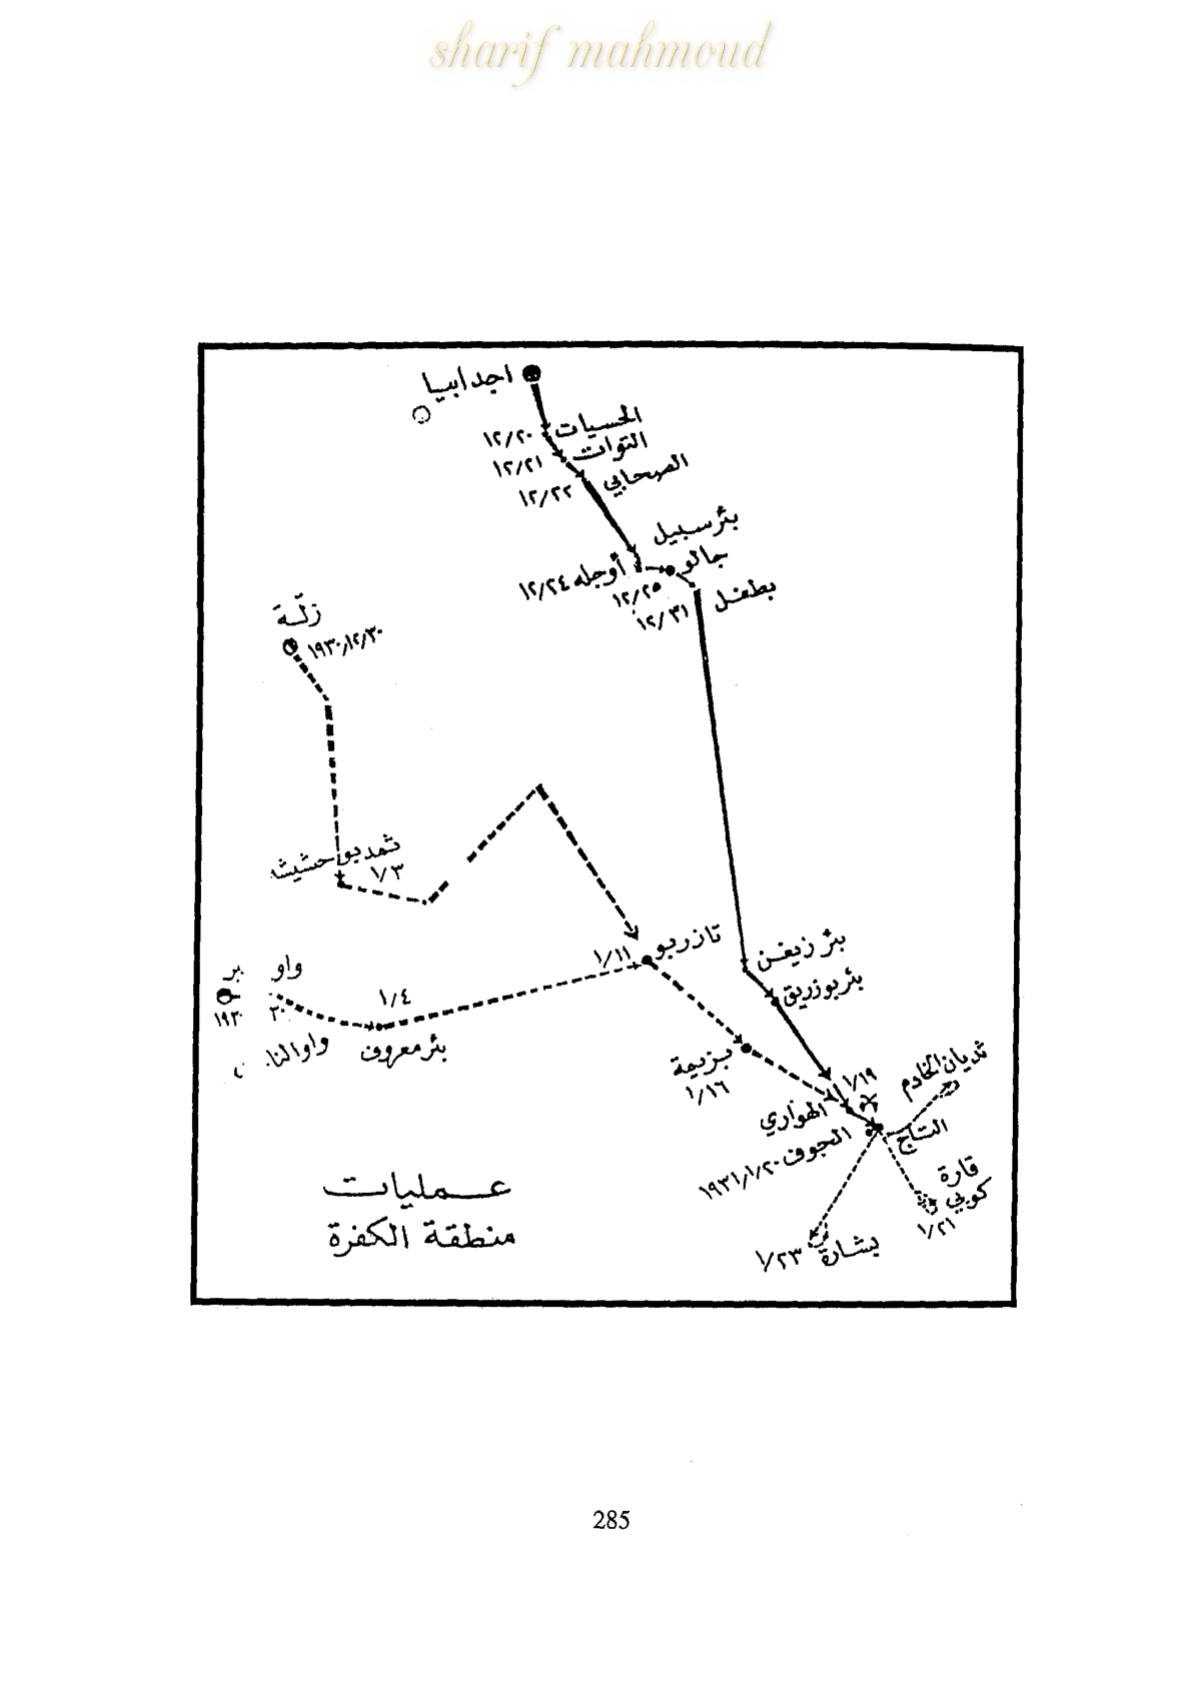 sharif mahmoud
اجدابيا
الحسيات
١٢/٢٠
التوات
١٢/٢١
الصحابي
١٢/٢٢
بئر سبيل
جالو
أوجله ١٢/٢٤
١٢/٢٥
بطفل
١٢/٣١
زلّة
١٩٣٠/١٢/٣٠
ثمد بو حشيشه
١/٣
تازربو
١/١١
بئر زيغن
بئر بوزريق
واو
١/٤
بئر معروف
بزيمة
١/١٦
١/١٩
ثديان الخادم
الهواري
التاج
الجوف ١٩٣١/١/٢٠
قارة
كوبي
١/٢١
بشارة ١/٢٣
عمليات
منطقة الكفرة
285